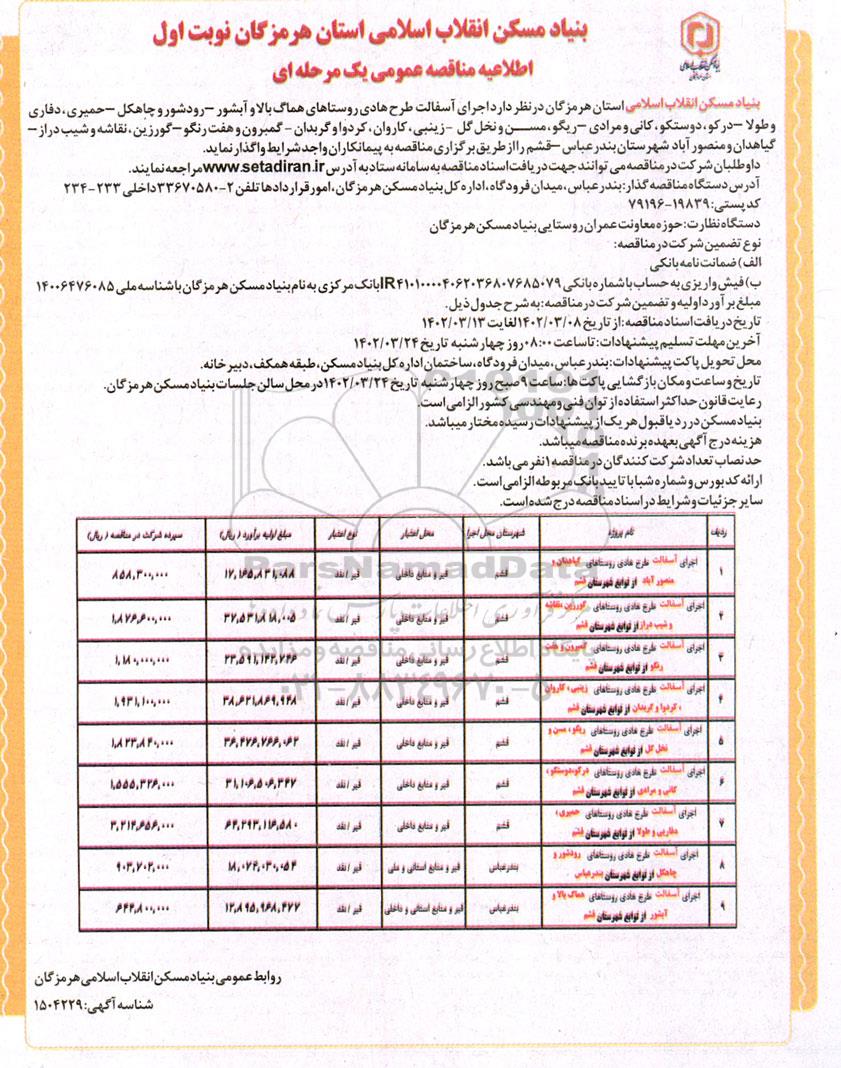 بنیاد مسکن انقلاب اسلامی استان هرمزگان نوبت اول
اطلاعیه مناقصه عمومی یک مرحله ای
بنیاد مسکن انقلاب اسلامی استان هرمزگان در نظر دارد اجرای آسفالت طرح هادی روستاهای هماگ بالا و آبشور –رودشور و چاهکل –حمیری، دفاری
و طولا –درکو، دوستکو، کانی و مرادی –ریگو، مسن و نخل گل –زینبی، کاروان، کردوا و گربدان – گمبرون و هفت رنگو –گورزین، نقاشه و شیب دراز –
گیاهدان و منصور آباد شهرستان بندرعباس –قشم را از طریق برگزاری مناقصه به پیمانکاران واجد شرایط واگذار نماید.
داوطلبان شرکت در مناقصه می توانند جهت دریافت اسناد مناقصه به سامانه ستاد به آدرس www.setadiran.ir مراجعه نمایند.
آدرس دستگاه مناقصه گذار: بندرعباس، میدان فرودگاه، اداره کل بنیاد مسکن هرمزگان، امور قراردادها تلفن ۲-۳۳۶۷۰۵۸۰ داخلی ۲۳۳-۲۳۴
کد پستی: ۱۹۸۳۹-۷۹۱۹۶
دستگاه نظارت: حوزه معاونت عمران روستایی بنیاد مسکن هرمزگان
نوع تضمین شرکت در مناقصه:
الف) ضمانت نامه بانکی
ب) فیش واریزی به حساب با شماره بانکی IR۴۱۰۱۰۰۰۰۴۰۶۲۰۳۶۸۰۷۶۸۵۰۷۹ بانک مرکزی به نام بنیاد مسکن هرمزگان با شناسه ملی ۱۴۰۰۶۴۷۶۰۸۵
مبلغ برآورد اولیه و تضمین شرکت در مناقصه: به شرح جدول ذیل.
تاریخ دریافت اسناد مناقصه: از تاریخ ۱۴۰۲/۰۳/۰۸ لغایت ۱۴۰۲/۰۳/۱۳
آخرین مهلت تسلیم پیشنهادات: تا ساعت ۰۸:۰۰ روز چهارشنبه تاریخ ۱۴۰۲/۰۳/۲۴
محل تحویل پاکت پیشنهادات: بندرعباس، میدان فرودگاه، ساختمان اداره کل بنیاد مسکن، طبقه همکف، دبیرخانه.
تاریخ و ساعت و مکان بازگشایی پاکت ها: ساعت ۹ صبح روز چهارشنبه تاریخ ۱۴۰۲/۰۳/۲۴ در محل سالن جلسات بنیاد مسکن هرمزگان.
رعایت قانون حداکثر استفاده از توان فنی و مهندسی کشور الزامی است.
بنیاد مسکن در رد یا قبول هر یک از پیشنهادات رسیده مختار میباشد.
هزینه درج آگهی بعهده برنده مناقصه میباشد.
حد نصاب تعداد شرکت کنندگان در مناقصه ۱ نفر می باشد.
ارائه کد بورس و شماره شبا با تایید بانک مربوطه الزامی است.
سایر جزئیات و شرایط در اسناد مناقصه درج شده است.
ردیف نام پروژه شهرستان محل اجرا محل اعتبار نوع اعتبار مبلغ اولیه برآورد ( ریال) سپرده شرکت در مناقصه ( ریال)
۱ اجرای آسفالت طرح هادی روستاهای گیاهدان و منصور آباد از توابع شهرستان قشم قشم قیر و منابع داخلی قیر / نقد ۱۷,۱۶۵,۸۳۱,۰۸۸ ۸۵۸,۳۰۰,۰۰۰
۲ اجرای آسفالت طرح هادی روستاهای گورزین، نقاشه و شیب دراز از توابع شهرستان قشم قشم قیر و منابع داخلی قیر / نقد ۳۷,۵۳۱,۸۱۸,۰۰۵ ۱,۸۷۶,۶۰۰,۰۰۰
۳ اجرای آسفالت طرح هادی روستاهای گمبرون و هفت رنگو از توابع شهرستان قشم قشم قیر و منابع داخلی قیر / نقد ۲۳,۵۹۱,۱۴۲,۷۴۶ ۱,۱۸۰,۰۰۰,۰۰۰
۴ اجرای آسفالت طرح هادی روستاهای زینبی، کاروان ، کردوا و گربدان از توابع شهرستان قشم قشم قیر و منابع داخلی قیر / نقد ۳۸,۶۲۱,۸۶۹,۹۴۸ ۱,۹۳۱,۱۰۰,۰۰۰
۵ اجرای آسفالت طرح هادی روستاهای ریگو، مسن و نخل گل از توابع شهرستان قشم قشم قیر و منابع داخلی قیر / نقد ۳۶,۴۷۶,۷۶۶,۰۶۲ ۱,۸۲۳,۸۴۰,۰۰۰
۶ اجرای آسفالت طرح هادی روستاهای درکو،دوستکو، کانی و مرادی از توابع شهرستان قشم قشم قیر و منابع داخلی قیر / نقد ۳۱,۱۰۶,۵۰۶,۳۴۷ ۱,۵۵۵,۳۲۶,۰۰۰
۷ اجرای آسفالت طرح هادی روستاهای حمیری، دفاربی و طولا از توابع شهرستان قشم قشم قیر و منابع داخلی قیر / نقد ۶۴,۲۹۳,۱۱۶,۵۸۰ ۳,۲۱۴,۶۵۶,۰۰۰
۸ اجرای آسفالت طرح هادی روستاهای رودشور و چاهکل از توابع شهرستان بندرعباس بندرعباس قیر و منابع استانی و ملی قیر / نقد ۱۸,۰۷۴,۰۳۰,۰۵۴ ۹۰۳,۷۰۲,۰۰۰
۹ اجرای آسفالت طرح هادی روستاهای هماگ بالا و آبشور از توابع شهرستان قشم بندرعباس قیر و منابع استانی و داخلی قیر / نقد ۱۲,۸۹۵,۹۶۸,۴۷۷ ۶۴۴,۸۰۰,۰۰۰
ParsNamadData
پایگاه اطلاع رسانی مناقصه و مزایده
۰۲۱-۸۸۳۴۹۶۷۰-۵
روابط عمومی بنیاد مسکن انقلاب اسلامی هرمزگان
شناسه آگهی: ۱۵۰۴۲۲۹